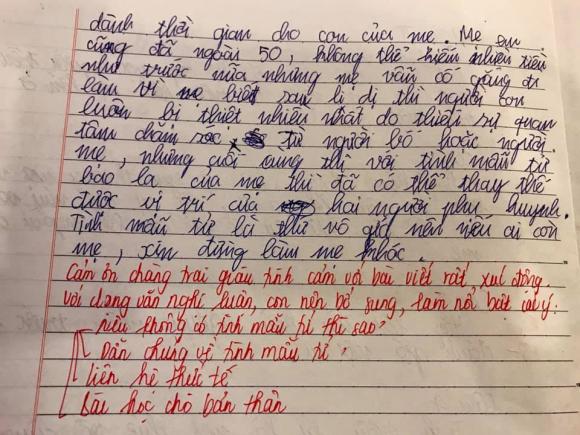 dành thời gian cho con của mẹ. Mẹ em
cũng đã ngoài 50, không thể kiếm nhiều tiền
như trước nữa nhưng mẹ vẫn cố gắng đi
làm vì mẹ biết sau li dị thì người con
luôn bị thiệt nhiều nhất do thiếu sự quan
tâm chăm sóc, từ người bố hoặc người
mẹ, nhưng cuối cùng thì với tình mẫu tử
bao la của mẹ thì đã có thể thay thế
được vị trí của hai người phụ huynh.
Tình mẫu tử là thứ vô giá nên nếu ai còn
mẹ, xin đừng làm mẹ khóc.
Cảm ơn chàng trai giàu tình cảm với bài viết rất xúc động.
với dạng văn nghị luận, con nên bổ sung, làm nổi bật các ý:
nếu không có tình mẫu tử thì sao?
Dẫn chứng về tình mẫu tử.
liên hệ thực tế
Bài học cho bản thân